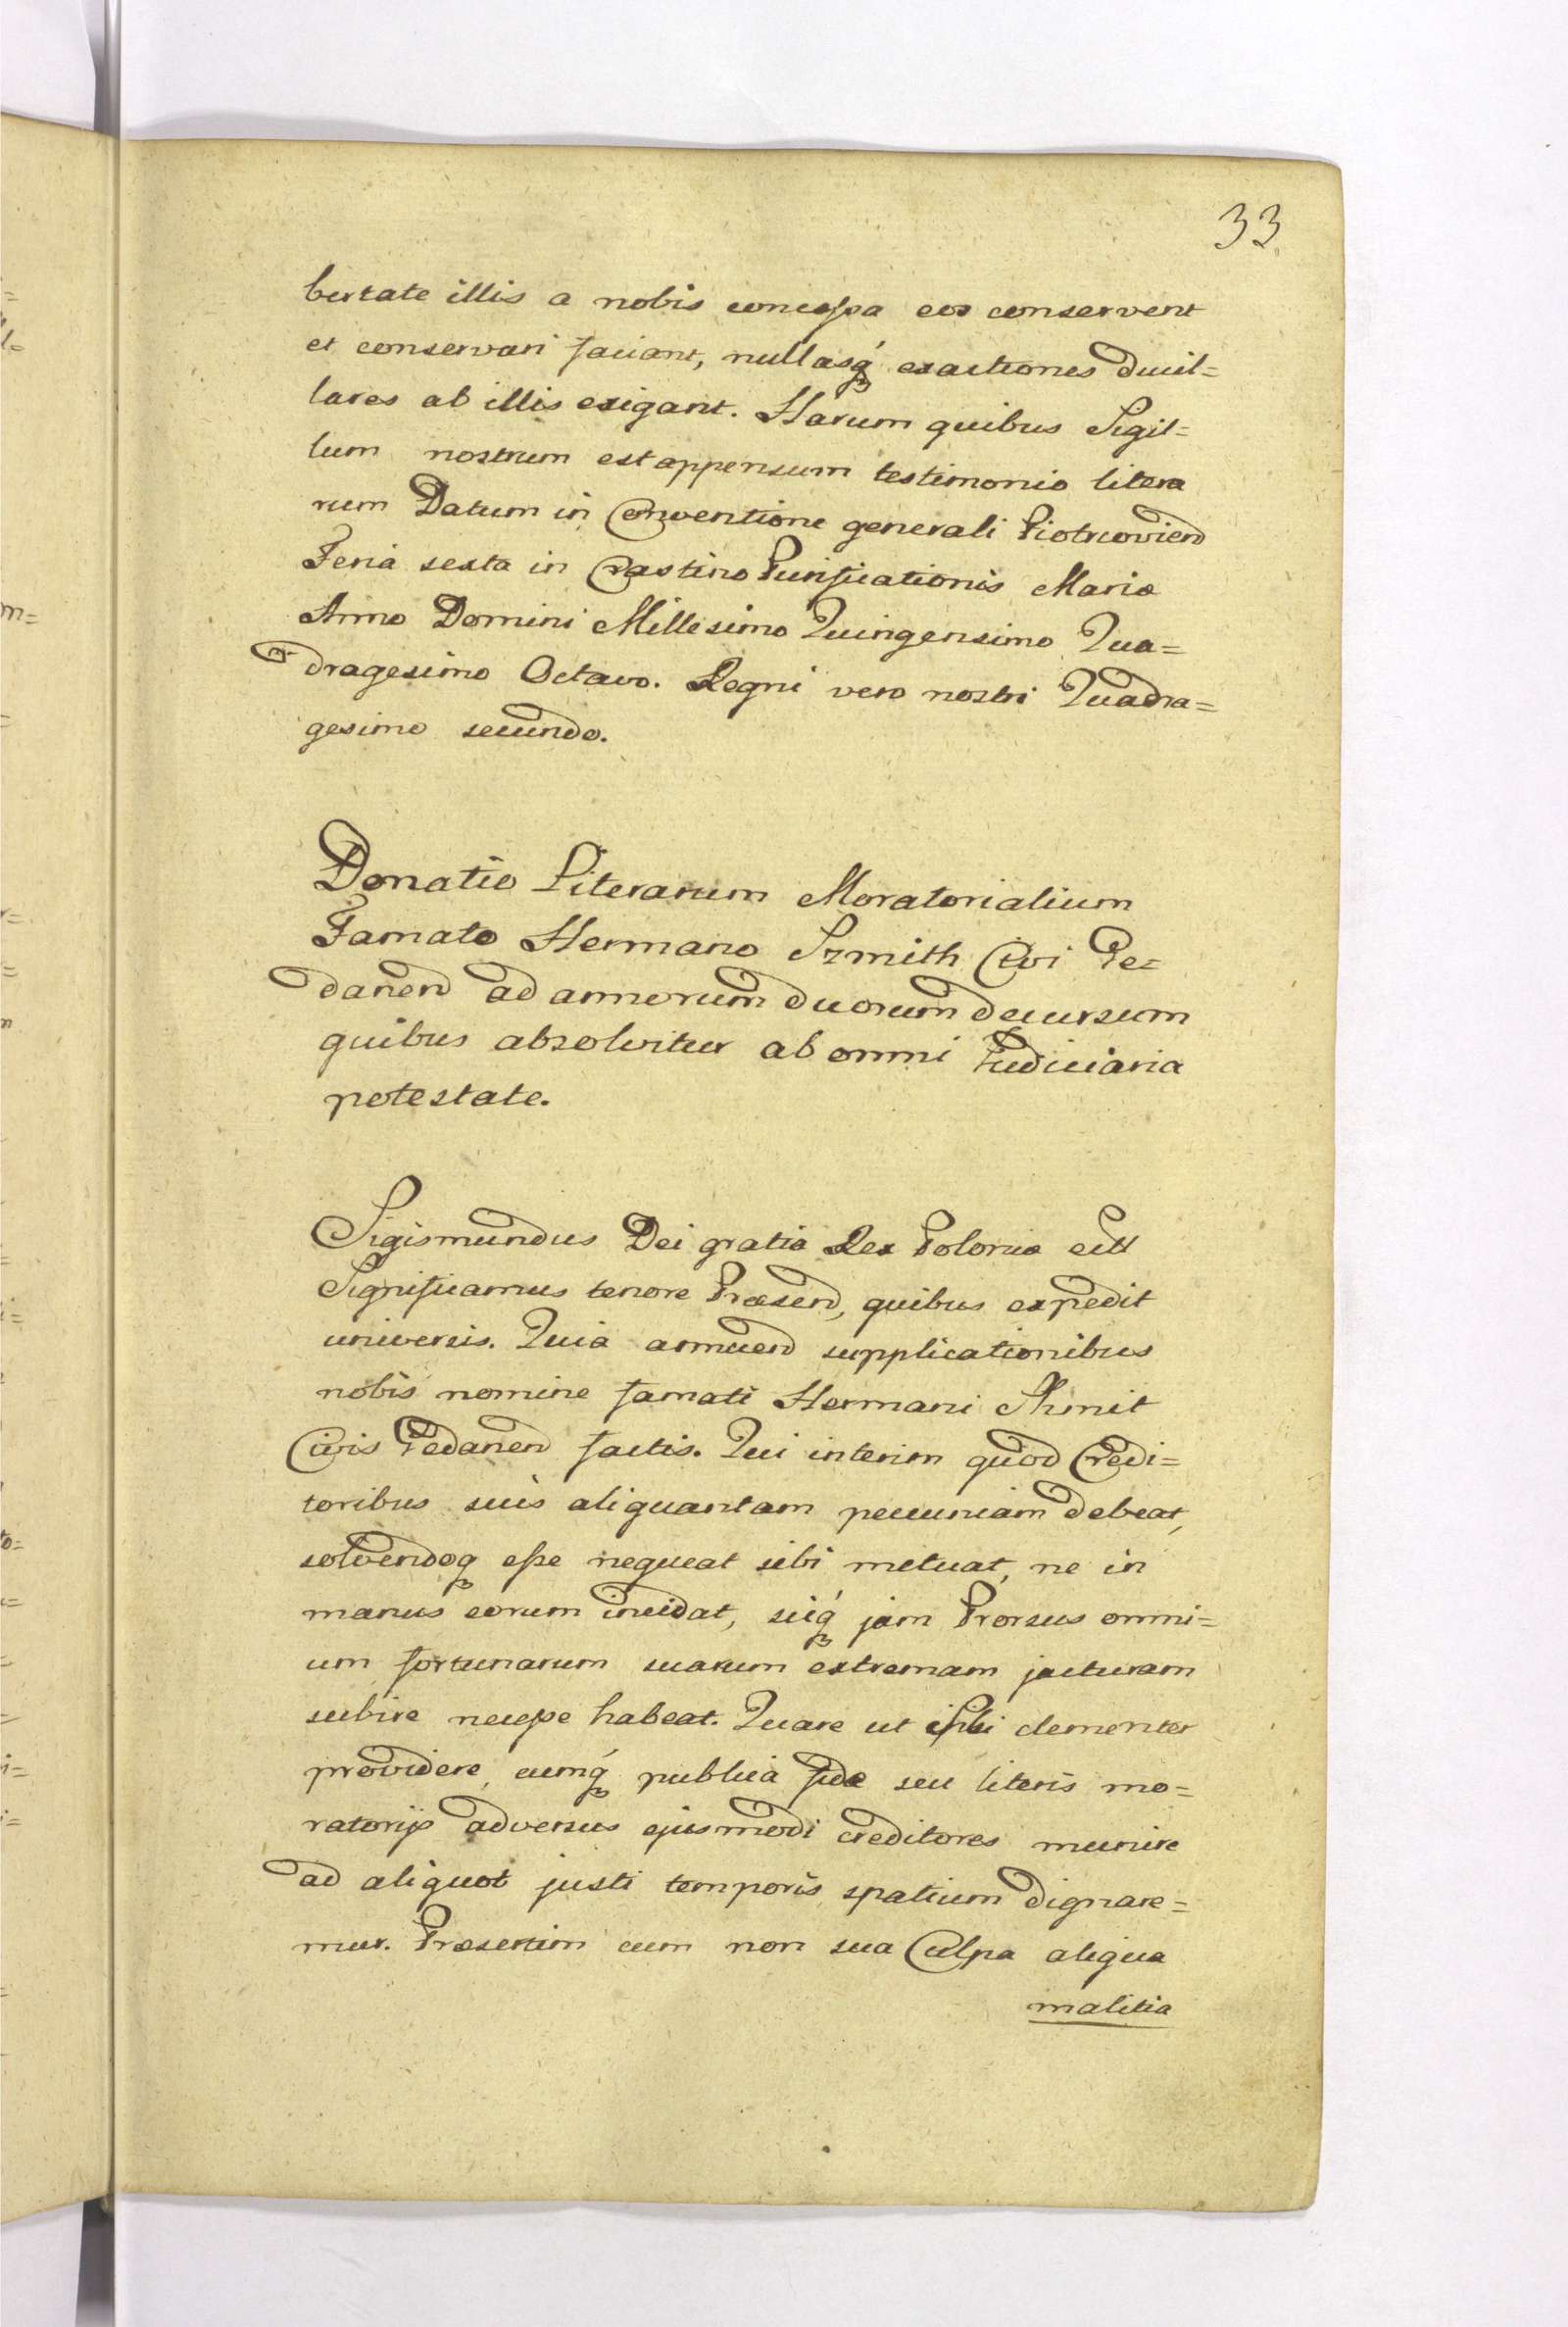 33
bertate illis a nobis concessa eos conservent
et conservari faciant, nullasq́ exactiones ducil=
lares ab illis exigant. Harum quibus Sigil=
lum nostrum est appensum testimonio litera
rum Datum in Conventione generali Piotrcovien
Feria sexta in Crastino Purificationis Mariæ
Anno Domini Millesimo Quingensimo Qua=
dragesimo Octavo. Regni vero nostri Quadra=
gesimo secundo.
Donatio Literarum Moratorialium
Famato Hermano Szmith Civi Ge=
danen ad annorum duorum decursum
quibus absolvitur ab omni Judiciaria
potestate.
Sigismundus Dei gratia Rex Poloniæ
Significamus tenore Præsen, quibus expedit
universis. Quia annuen supplicationibus
nobis nomine famati Hermani Shmit
Civis Gedanen factis. Qui interim quod Credi=
toribus suis aliquantam pecuniam debeat,
solvendoq esse nequeat sibi metuat, ne in
manus eorum incidat, sicq́ jam Prorsus omni=
um fortunarum suarum extremam jacturam
subire necesse habeat. Quare ut ipsi clementer
providere, eumq́ publica fide seu literis mo=
ratorijs adversus ejusmodi creditores munire
ad aliquot justi temporis spatium dignare=
mur. Præsertim cum non sua Culpa aliqua
malitia